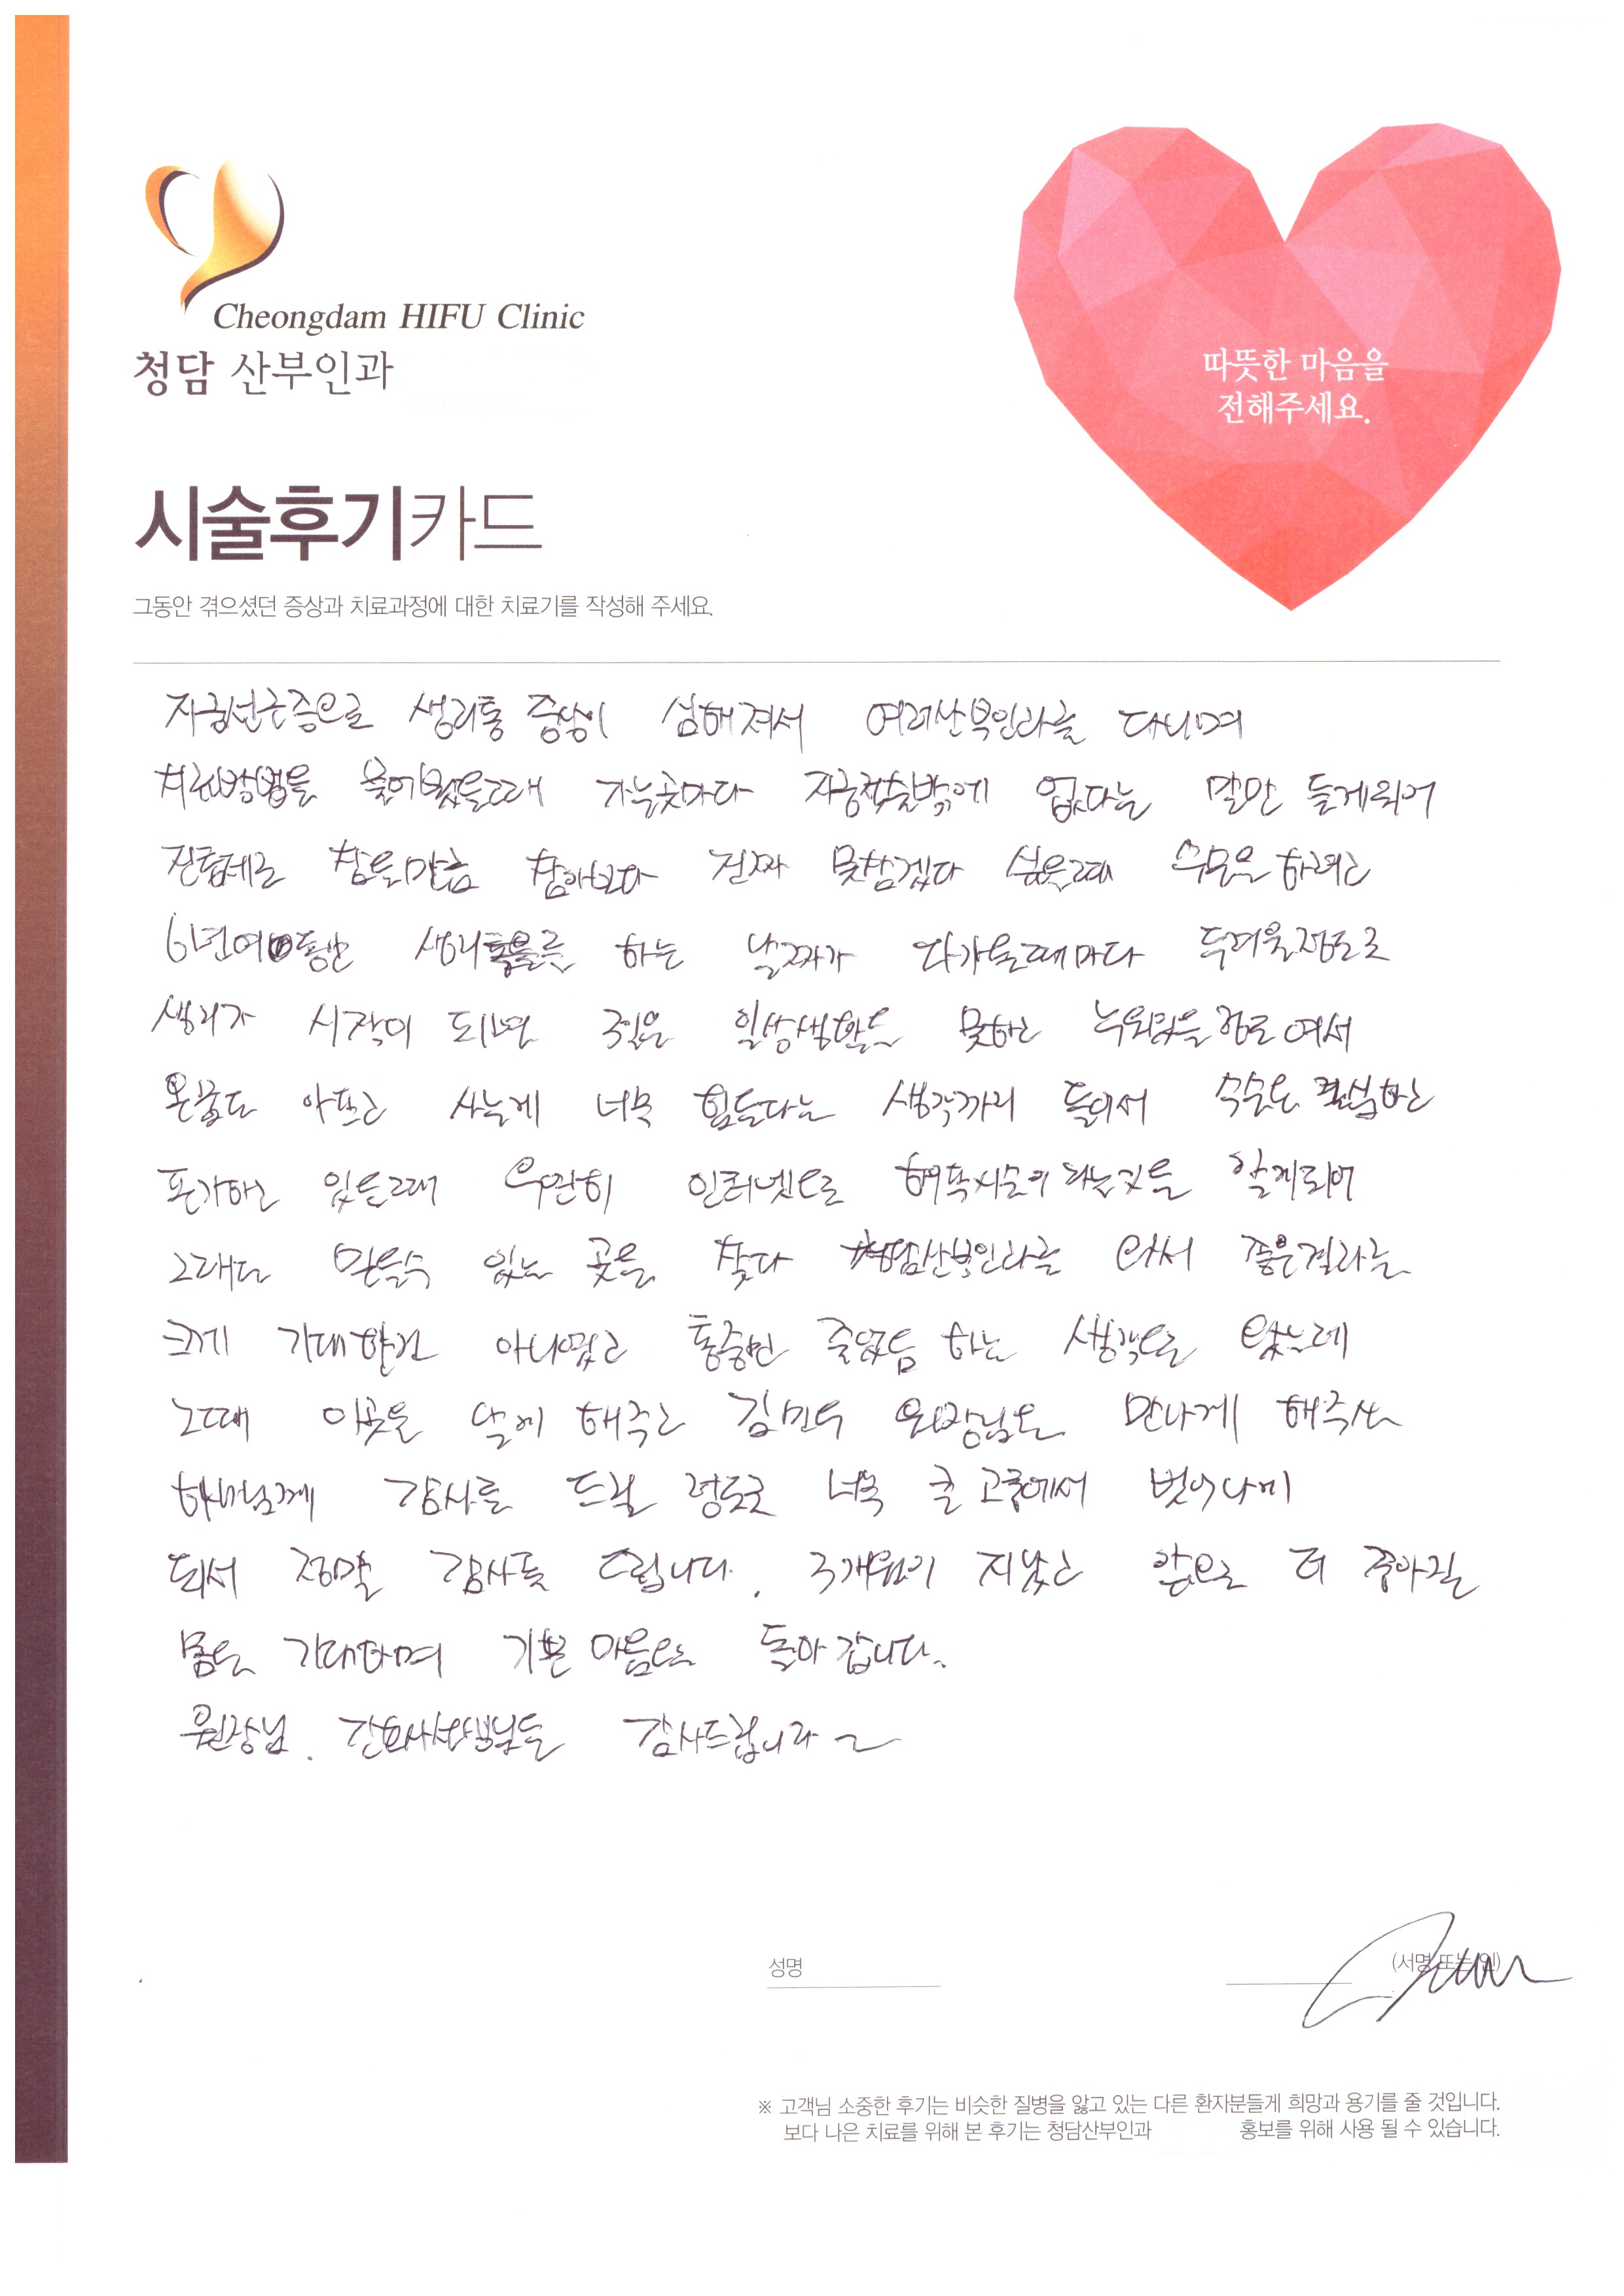 Cheongdam HIFU Clinic
청담 산부인과
따뜻한 마음을
전해주세요.
시술후기카드
그동안 겪으셨던 증상과 치료과정에 대한 치료기를 작성해 주세요.
자궁선근증으로 생리통 증상이 심해져서 여러산부인과를 다니며
치료방법을 물어봤을때 가는곳마다 자궁적출밖에 없다는 말만 듣게되어
진통제로 참을만큼 참아보다 진짜 못참겠다 싶을때 수술을 하려고
6년여동안 생리를 하는 날짜가 다가올때마다 두려울정도로
생리가 시작이 되면 3일은 일상생활도 못하고 누워있을정도여서
온몸도 아프고 사는게 너무 힘들다는 생각까지 들어서 수술을 결심하고
포기하고 있을때 우연히 인터넷으로 하이푸시술이라는것을 알게되어
그래도 믿을수 있는 곳을 찾다 청담산부인과를 와서 좋은결과를
크게 기대한건 아니였고 통증만 줄었음 하는 생각으로 왔는데
그때 이곳을 알게 해주고 김민우 원장님을 만나게 해주신
하나님께 감사를 드릴 정도로 너무 큰 고통에서 벗어나게
되서 정말 감사를 드립니다. 3개월이 지났고 앞으로 더 좋아질
몸을 기대하며 기쁜 마음으로 돌아 갑니다.
원장님. 간호사선생님들 감사드립니다~
성명 (서명 또는 인)
※ 고객님 소중한 후기는 비슷한 질병을 앓고 있는 다른 환자분들게 희망과 용기를 줄 것입니다.
보다 나은 치료를 위해 본 후기는 청담산부인과 홍보를 위해 사용 될 수 있습니다.